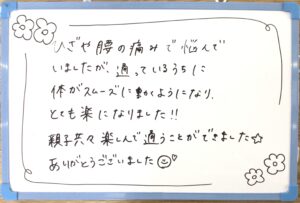 ひざや腰の痛みで悩んで
いましたが、通っているうちに
体がスムーズに動くようになり、
とても楽になりました!!
親子共々楽しんで通うことができました☆
ありがとうございました☺♡